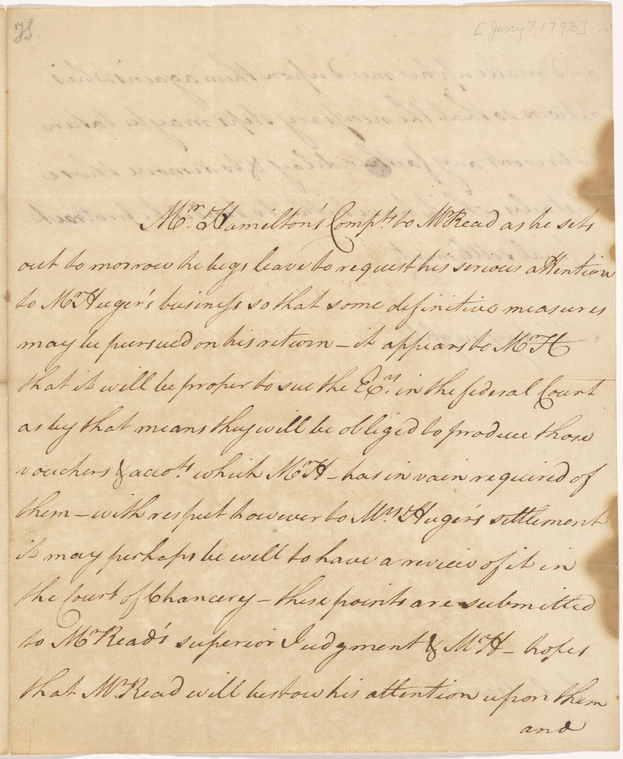 [Jany 7, 1793]
Mr. Hamilton's Compts. to Mr Read as he sets
out to morrow he begs leave to request his serious attention
to Mr Huger's business so that some definitive measures
may be pursued on his return – it appears to Mr H
that it will be proper to sue the Exrs. in the federal Court
as by that means they will be obliged to produce those
vouchers & accots. which Mr H – has in vain required of
them – with respect however to Mrs Huger's settlement
it may perhaps be well to have a review of it in
the Court of Chancery – these points are submitted
to Mr Read's superior Judgment & Mr H – hopes
that Mr Read will bestow his attention upon them
and